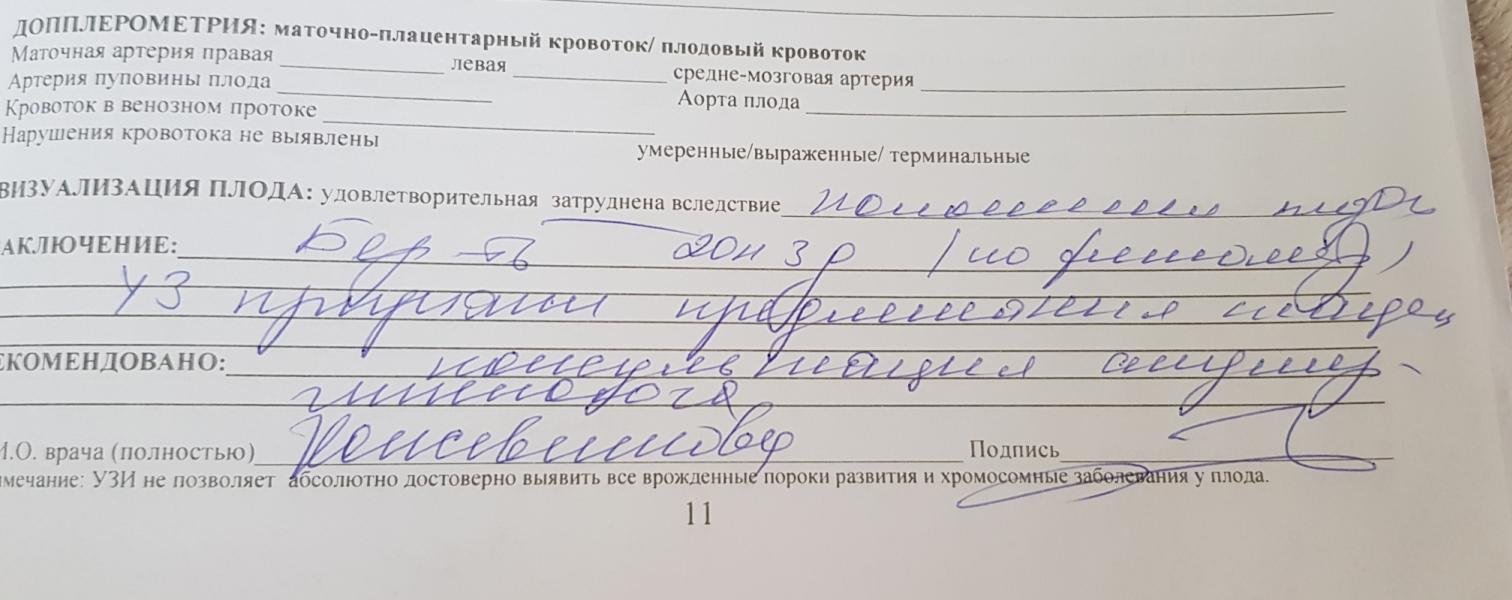 ДОППЛЕРОМЕТРИЯ: маточно-плацентарный кровоток/ плодовый кровоток
Маточная артерия правая левая средне-мозговая артерия
Артерия пуповины плода Аорта плода
Кровоток в венозном протоке
Нарушения кровотока не выявлены умеренные/выраженные/ терминальные
ВИЗУАЛИЗАЦИЯ ПЛОДА: удовлетворительная затруднена вследствие положения плода
АКЛЮЧЕНИЕ: Бер-ть 20н 3 (по фетометр)
УЗ признаки предлежания плацен
ЕКОМЕНДОВАНО: консультация акушер-
гинеколога
И.О. врача (полностью) Подпись
мечание: УЗИ не позволяет абсолютно достоверно выявить все врожденные пороки развития и хромосомные заболевания у плода.
11